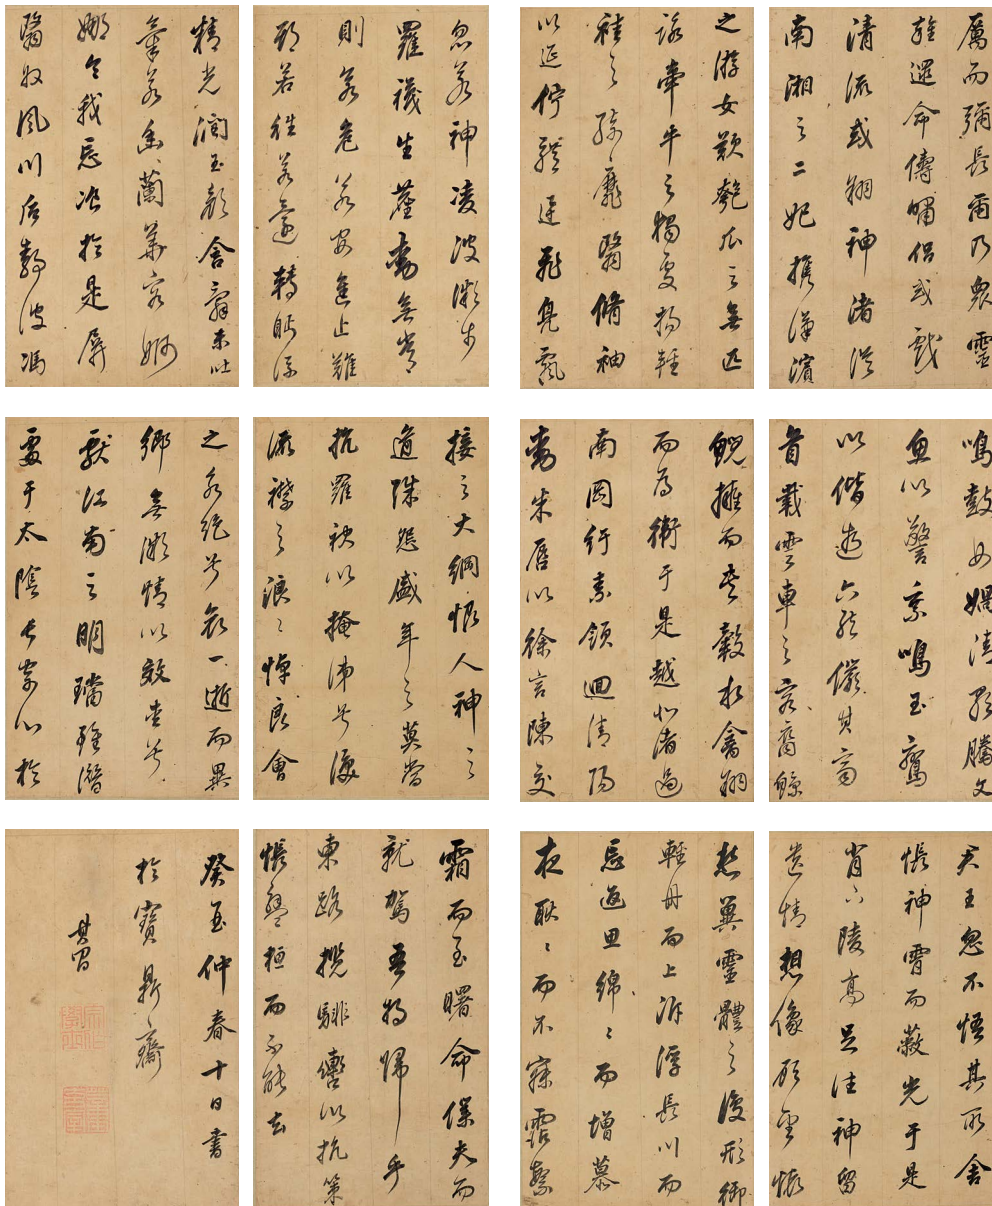 厲而彌長爾乃眾靈
雜遝命儔嘯侶或戲
清流或翔神渚從
南湘之二妃攜漢濱
之游女歎匏瓜之無匹
詠牽牛之獨處揚輕
袿之猗靡翳脩袖
以延佇體迅飛鳧飄
忽若神凌波微步
羅襪生塵動無常
則若危若安進止難
期若往若還轉眄流
精光潤玉顏含辭未吐
氣若幽蘭華容婀
娜令我忘飡於是屏
翳收風川后靜波馮
鳴鼓女媧清歌騰文
魚以警乘鳴玉鸞
以偕逝六龍儼其齊
首載雲車之容裔鯨
鯢擁而夾轂水禽翔
而為衛于是越北渚過
南岡紆素領迴清陽
動朱唇以徐言陳交
接之大綱恨人神之
道殊怨盛年之莫當
抗羅袂以掩涕兮淚
流襟之浪〻悼良會
之永絕兮哀一逝而異
鄉無微情以效愛兮
獻江南之明璫雖潛
處于太陰長寄心於
君王忽不悟其所舍
悵神霄而蔽光于是
背下陵高足往神留
遺情想像顧望懷
愁冀靈體之復形御
輕舟而上泝浮長川而
忘返思綿〻而增慕
夜耿〻而不寐霑繁
霜而至曙命僕夫而
就駕吾將歸乎
東路攬騑轡以抗策
悵盤桓而不能去
癸仲春十日書
於寶鼎齋
其昌